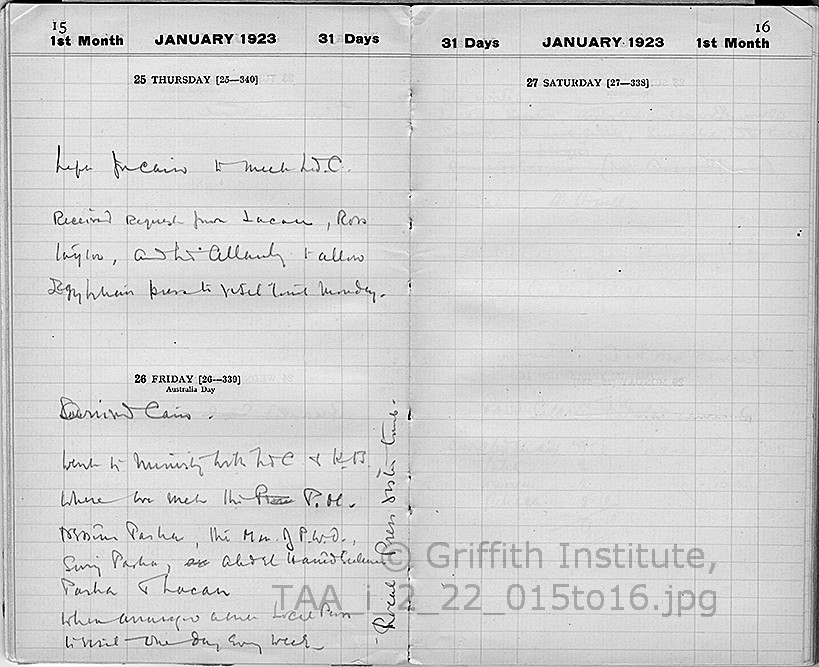 15
1st Month JANUARY 1923 31 Days
25 THURSDAY [25—340]
Left for Cairo to meet Ld. C.
Received request from Lacau, Ross
Taylor, and Ld. Allenby to allow
Egyptian press to visit Tomb Monday.
26 FRIDAY [26—339]
Australia Day
Arrived Cairo.
Went to Ministry with Ld C &
where we met the P.M.
Nessim Pasha, the Min. of P.W.D.,
Pasha, Abdel Hamid Suleman
Pasha & Lacau
When arranged allow Local Press
to visit one day every week
- Local Press visits Tomb -
16
31 Days JANUARY 1923 1st Month
27 SATURDAY [27—338]
© Griffith Institute,
TAA_i_2_22_015to16.jpg